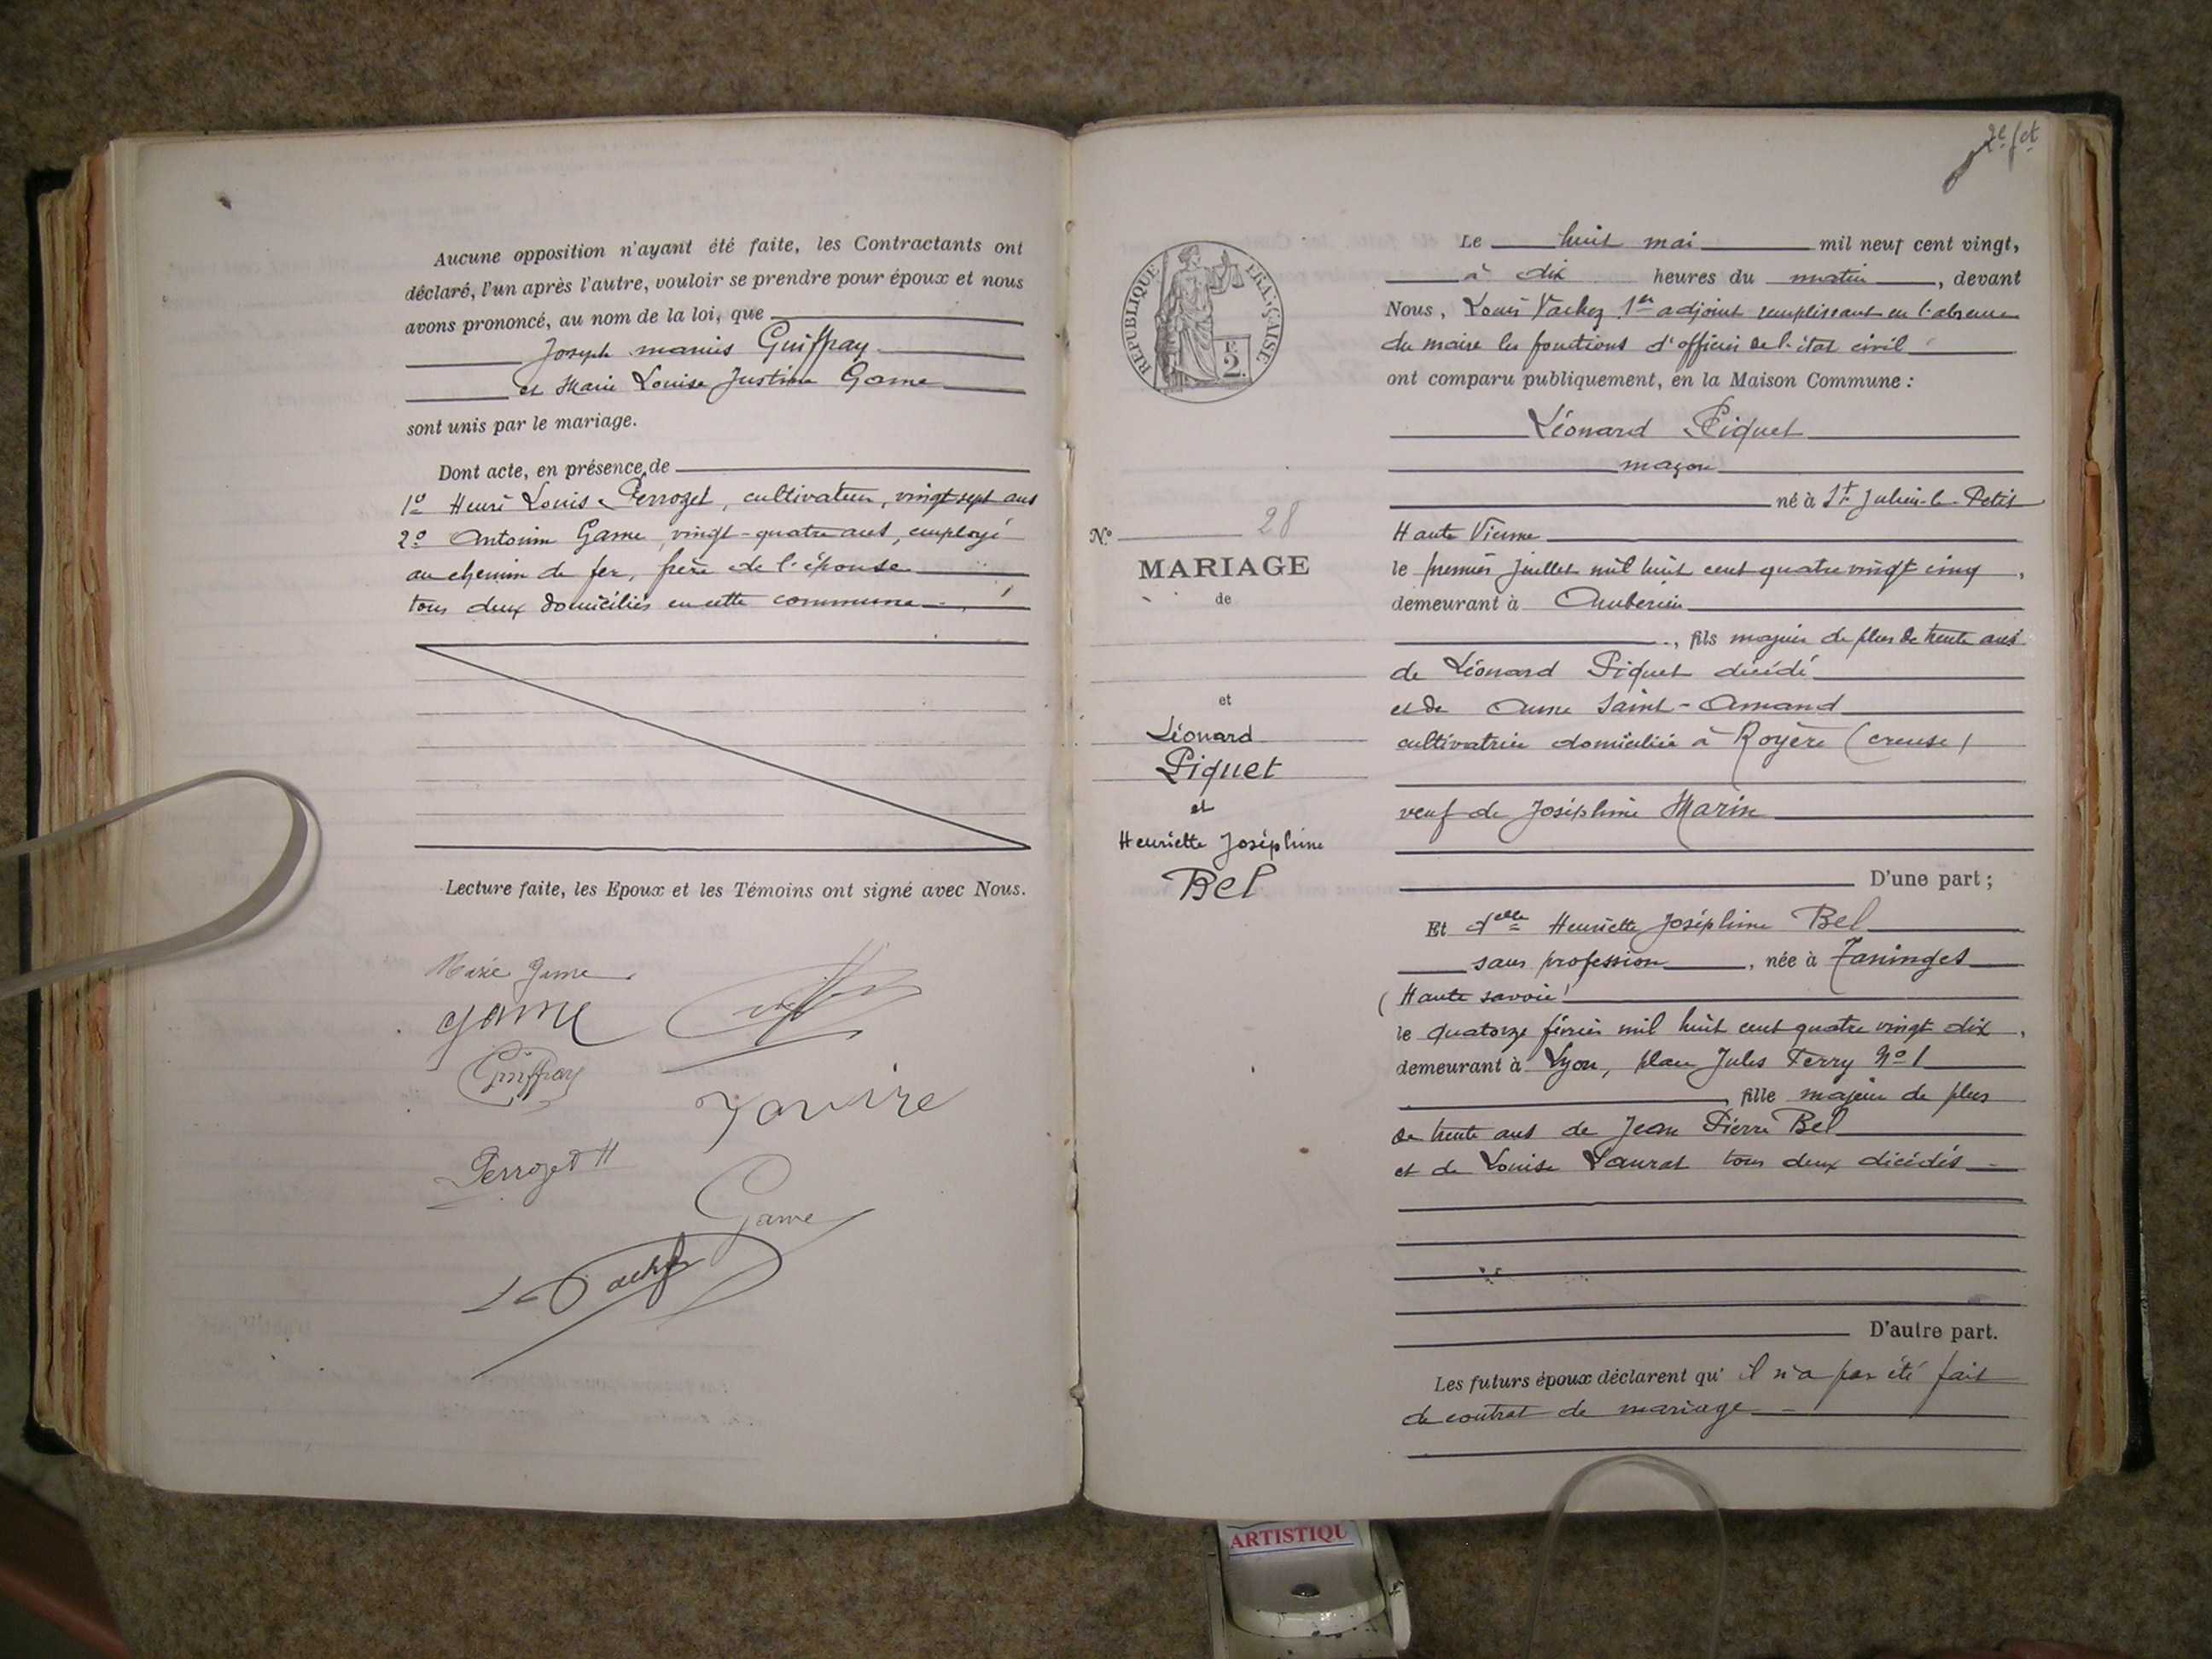 Aucune opposition n'ayant été faite, les Contractants ont
déclaré, l'un après l'autre, vouloir se prendre pour époux et nous
avons prononcé, au nom de la loi, que
Joseph marius Guiffray
et Marie Louise Justine Game
sont unis par le mariage.
Dont acte, en présence de
1º Henri Louis Perrozet, cultivateur, vingt sept ans
2º Antonin Game, vingt-quatre ans, employé
au chemin de fer, frère de l'épouse
tous deux domiciliés en cette commune
Lecture faite, les Epoux et les Témoins ont signé avec Nous.
Marie Game
game
Guiffray
Perrozet H
Game
2e fet
REPUBLIQUE FRANÇAISE
2
Le huit mai mil neuf cent vingt,
à dix heures du matin, devant
Nous, Louis Vachez 1er adjoint remplissant en l'absence
du maire les fonctions d'officier de l'état civil
ont comparu publiquement, en la Maison Commune :
Léonard Piquet
maçon
né à St Julien-le-Petit
Haute Vienne
le premier juillet mil huit cent quatre vingt cinq,
demeurant à Ambérieu
, fils majeur de plus de trente ans
de Léonard Piquet décédé
et de Anne Saint-Amand
cultivatrice domiciliée à Royère (creuse)
veuf de Joséphine Marin
D'une part ;
Et delle Henriette Joséphine Bel
sans profession, née à Taninges
(Haute savoie)
le quatorze février mil huit cent quatre vingt dix,
demeurant à Lyon, place Jules Ferry Nº 1
, fille majeure de plus
de trente ans de Jean Pierre Bel
et de Louise Laurat tous deux décédés
D'autre part.
Les futurs époux déclarent qu' il n'a pas été fait
de contrat de mariage
Nº 28
MARIAGE
de
et
Léonard
Piquet
et
Henriette Joséphine
Bel
ARTISTIQU